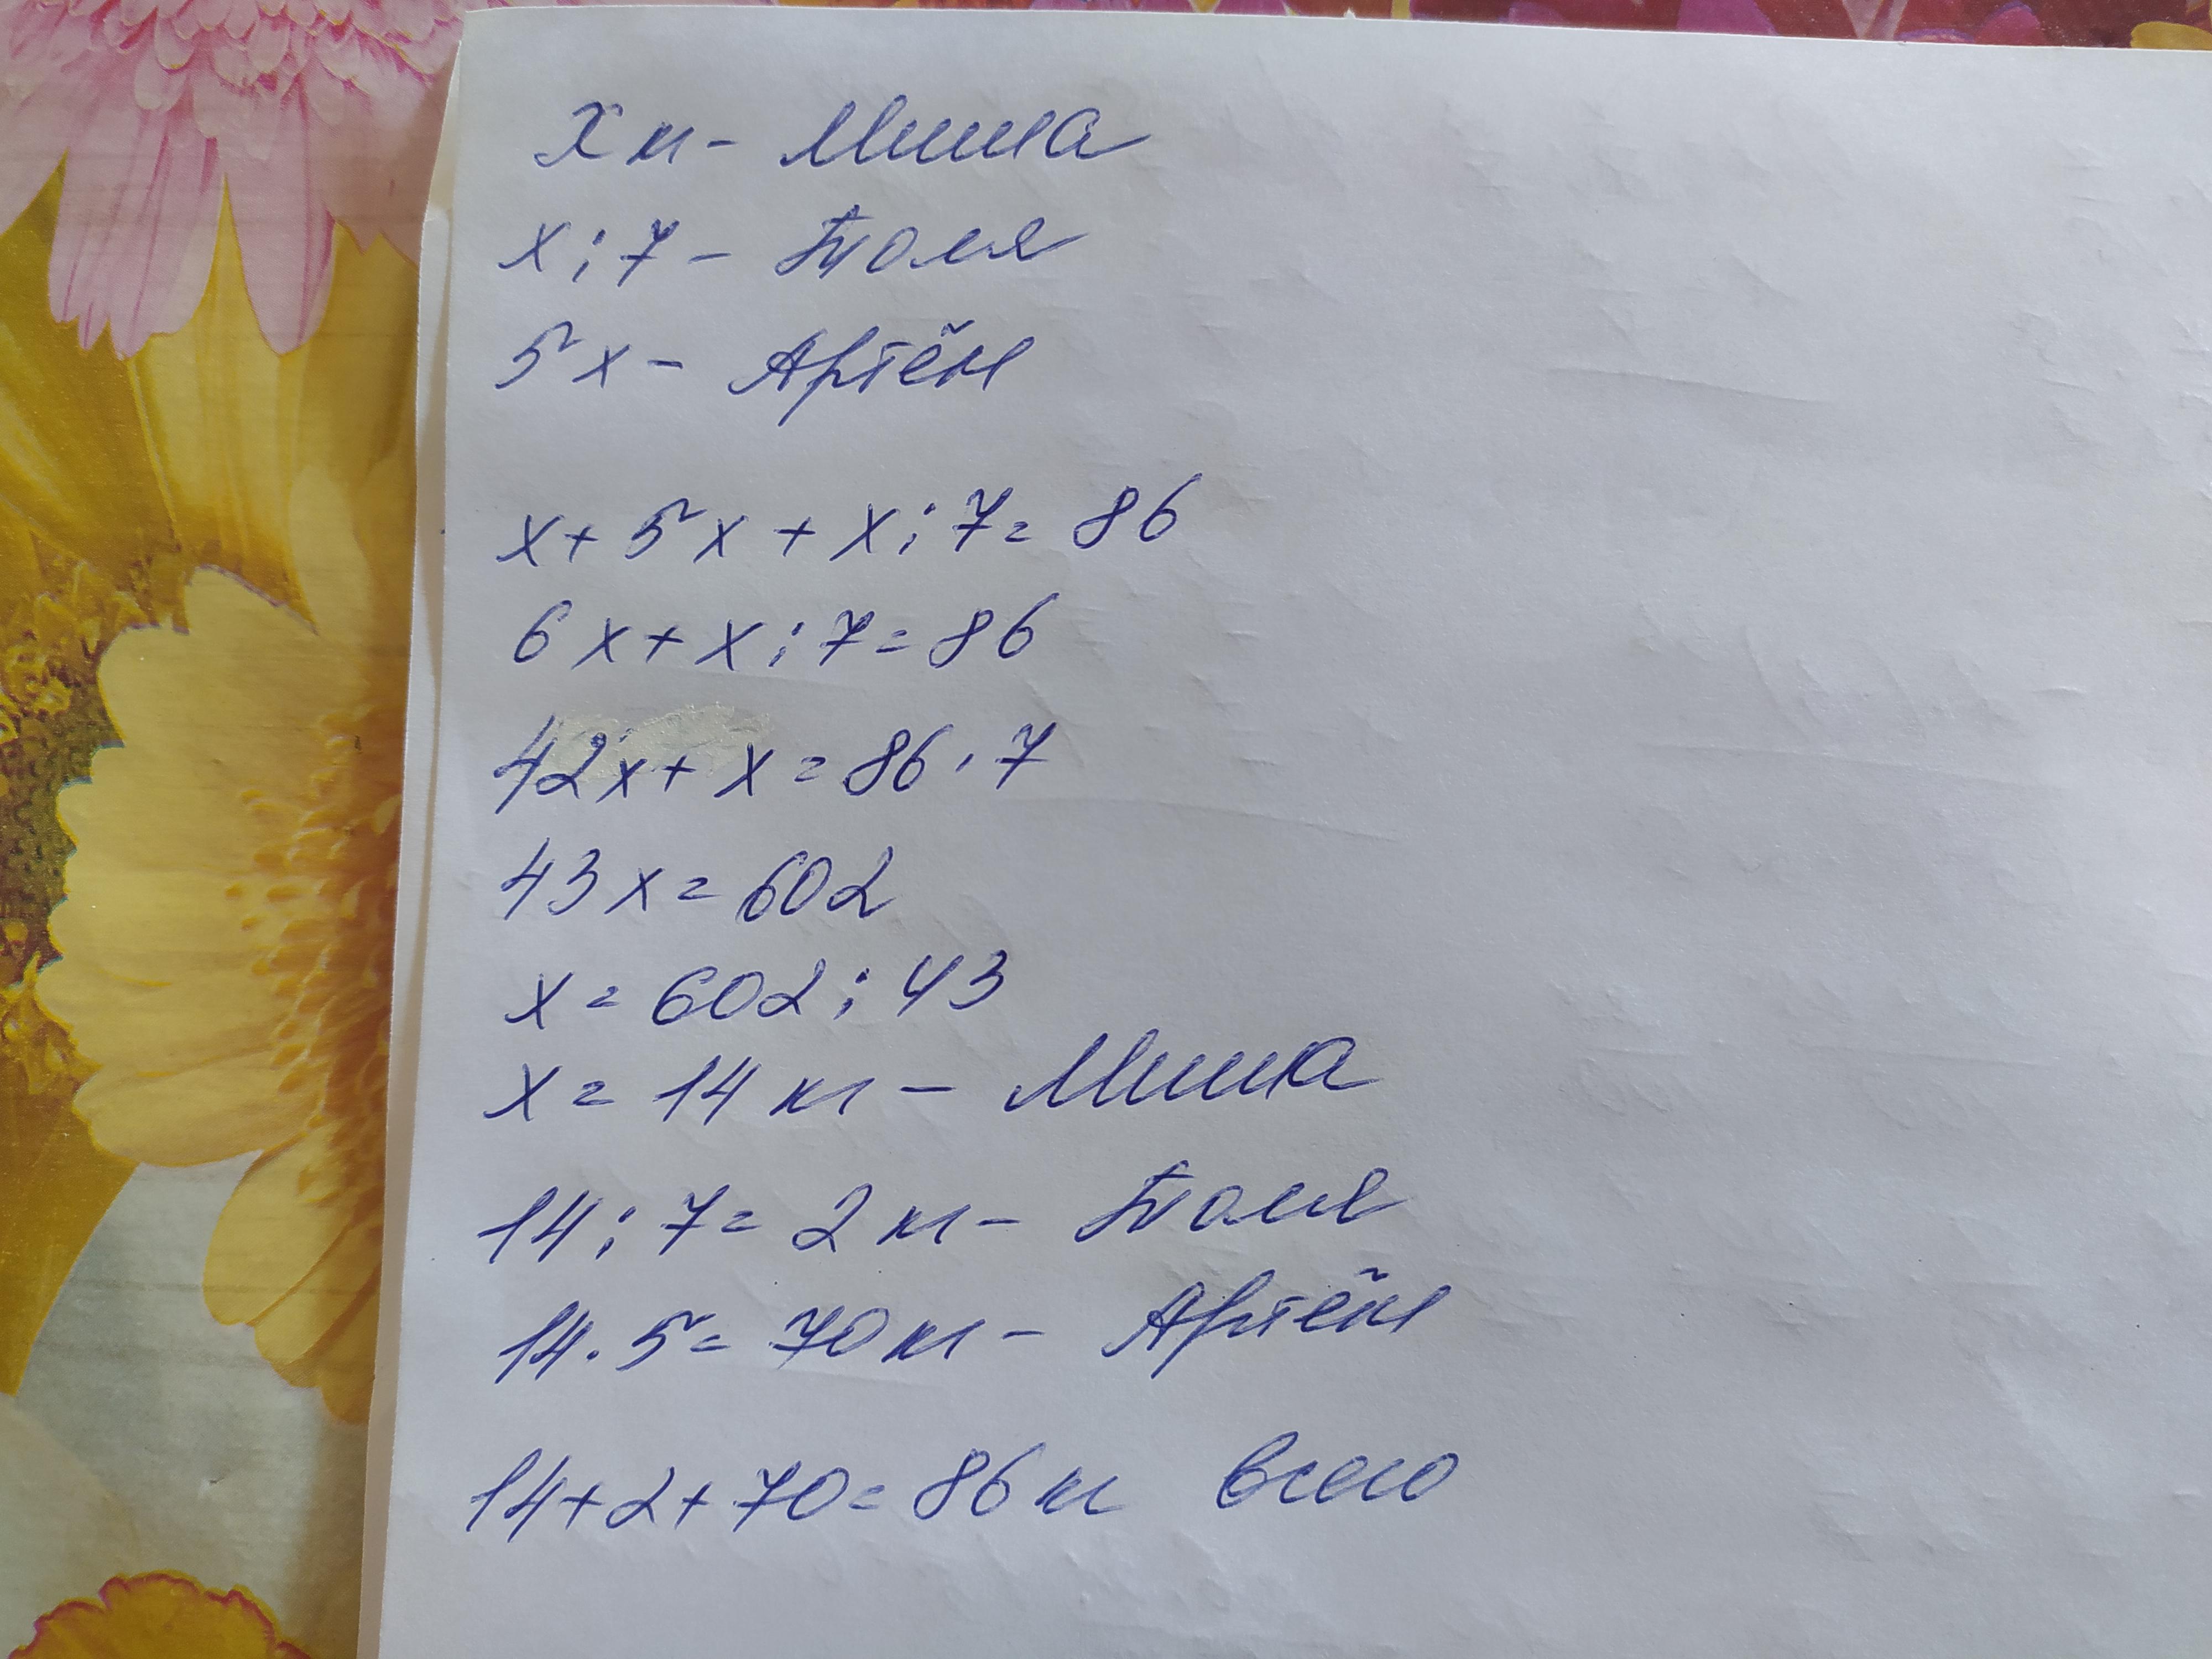 x м - Миша
x : 7 - Толя
5x - Артём
x + 5x + x : 7 = 86
6x + x : 7 = 86
42x + x = 86 · 7
43x = 602
x = 602 : 43
x = 14 м - Миша
14 : 7 = 2 м - Толя
14 · 5 = 70 м - Артём
14 + 2 + 70 = 86 м всего